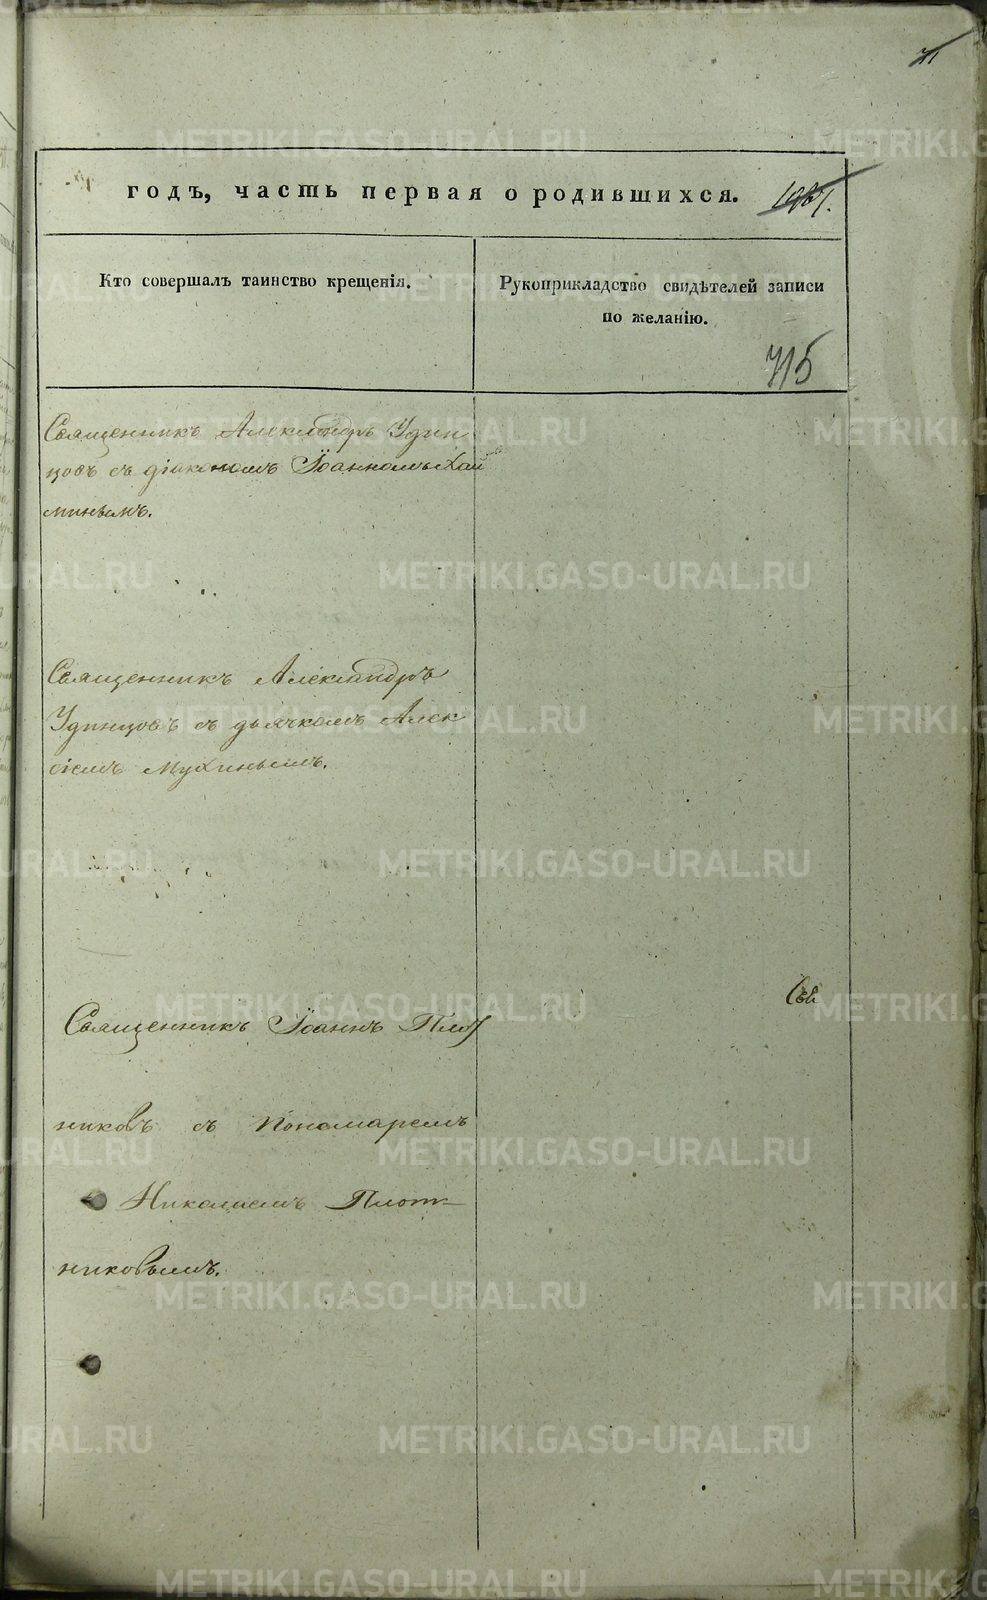 71
годъ, часть первая о родившихся.
Кто совершалъ таинство крещенія.
Рукоприкладство свидѣтелей записи
по желанію.
715
Священникъ Александръ Удин
цовъ съ діакономъ Іоанномъ
миннымъ.
Священникъ Александръ
Удинцовъ съ дьячкомъ Алек
сіемъ Мухинымъ.
Священникъ Іоаннъ Плот
никовъ съ Пономаремъ
Николаемъ Плот
никовымъ.
METRIKI.GASO-URAL.RU